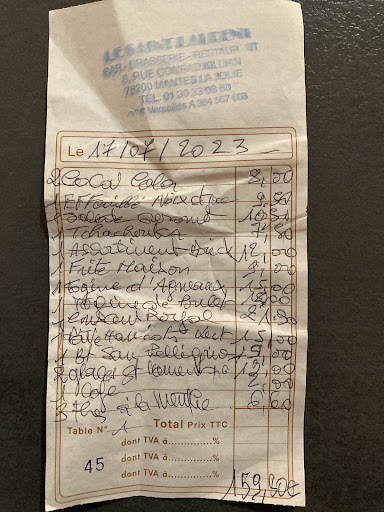 LE SAINT LAURENT
BAR - BRASSERIE - RESTAURANT
6, RUE CONRAD KILIAN
78200 MANTES LA JOLIE
TEL. 01 30 33 98 80
Versailles A 384 567 608
Le 17/07/2023
2 Coca Cola 8,00
1 9,50
1 Salade 10,50
1 Tchachouka 7,50
1 Assortiment Brick 12,00
1 Frite Maison
1 Tagine d'Agneaux 15,00
1 Tagine de Poulet
1 Couscous Royal 21,50
1 Haricots Vert
1 Bt San Pellegrino
2 glaces
1 Café 2,00
3 thés à la menthe 6,60
Table N° 1 Total Prix TTC
dont TVA à..............%
45 dont TVA à..............%
dont TVA à..............%
159,80€